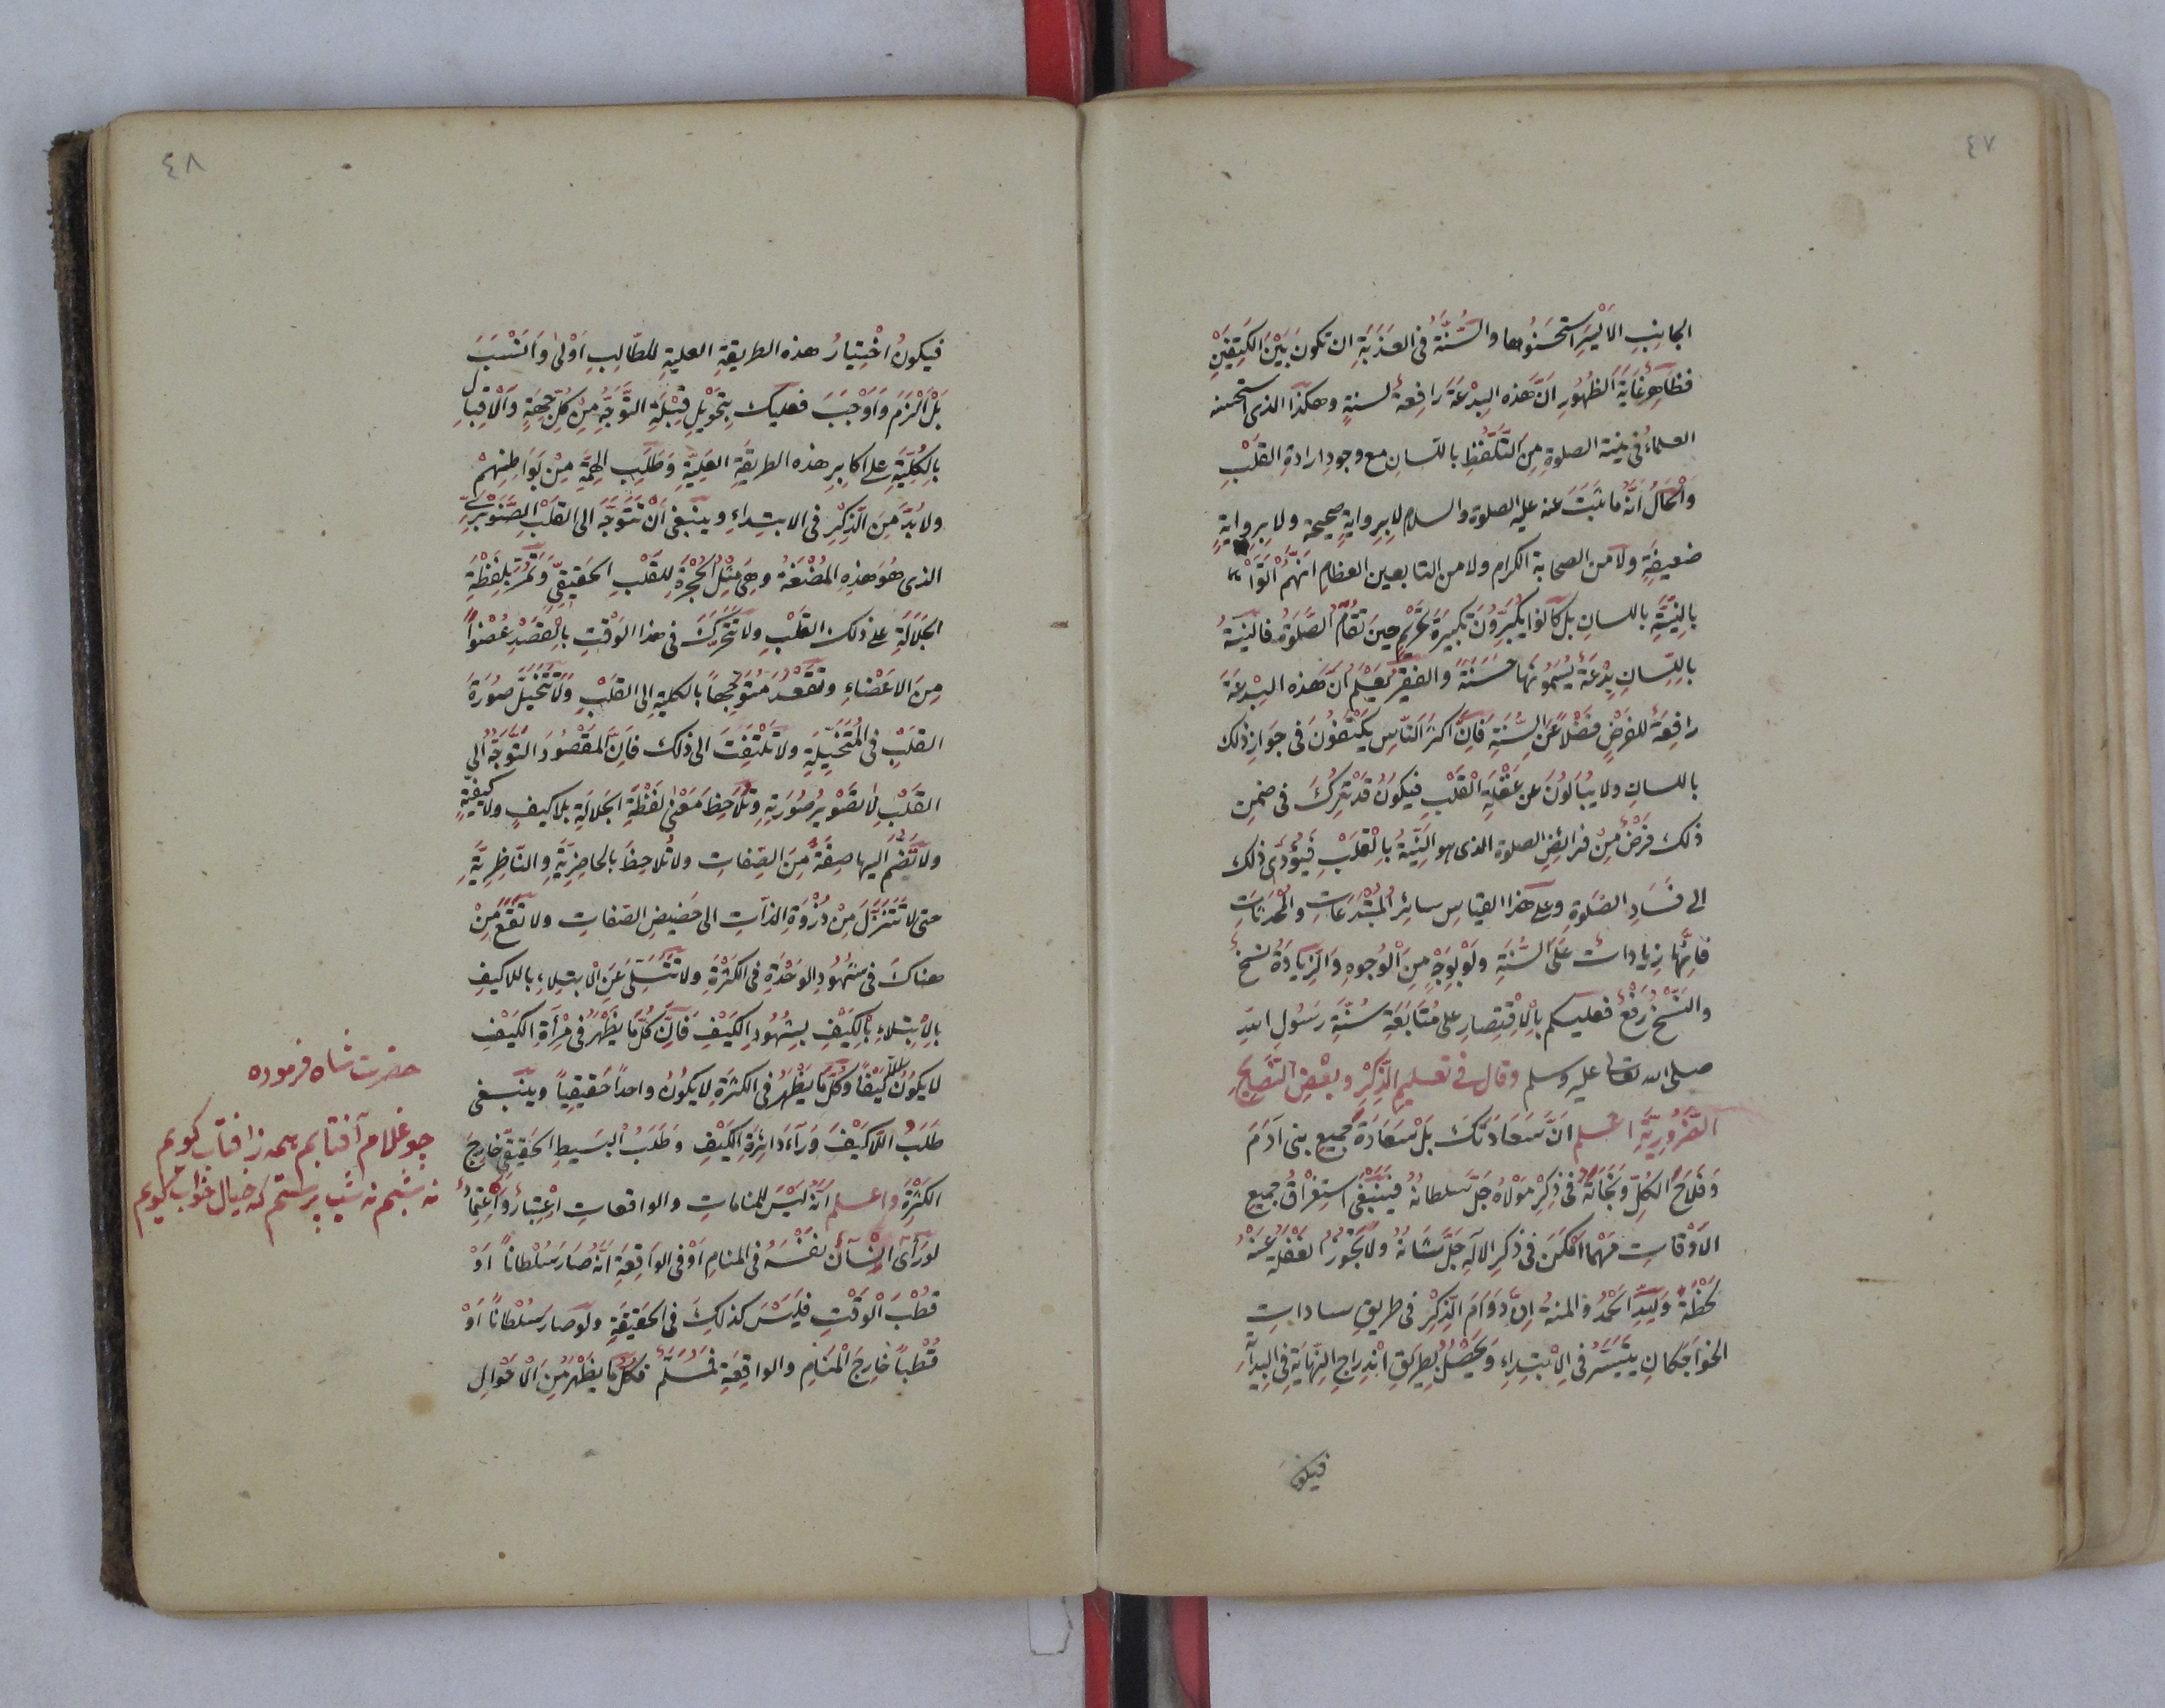 ٤٧
الجانِبِ الاَيْسَرِ استَحسَنُوها والسُّنَّةُ فى العَذَبَةِ ان تكونَ بَيْنَ الكَتِفَيْنِ
فظاهِرٌ غايَةَ الظُهُورِ اَنَّ هَذه البِدْعَةَ رَافِعَةٌ لسنةٍ وهكذا الذى استحسنه
العلماءُ فى نية الصلوةِ مِنَ التَّلَفُّظِ باللسانِ مع وجودِ ارادةِ القَلْبِ
وَالْحَالُ اَنَّهُ مَا ثَبَتَ عنه عليه الصلوة والسلام لا بِرِوايةٍ صحيحة ولا بِرِوايةٍ
ضعيفةٍ ولا من الصحابة الكرام ولا من التابعين العظامِ اَنَّهُمْ اَتَوْا
بِالنِيَّةِ باللسانِ بل كانوا يُكَبِّرُونَ تكبيرَةَ تَحْرِيمٍ حينَ تُقَامُ الصَّلوَةُ فالنيّةُ
بِاللِّسانِ بِدْعَةٌ يُسَمُّونَهَا حَسَنَةً والفقيرُ يَعْلَمُ اَنَّ هَذه البِدْعَةَ
رافِعَةٌ للفرضِ فضْلاً عَنِ السُّنَّةِ فَاِنَّ اكثرَ النّاسِ يَكْتَفُونَ فى جوازِ ذلك
باللسانِ ولا يُبَالُونَ عن غَفْلَةِ القَلْبِ فيكونُ قَدْ تُرِكَ فى ضمنِ
ذلك فَرْضٌ مِنْ فَرائِضِ الصلوة الذى هو النِّيَةُ بِالْقَلْبِ فَيُؤَدّى ذلك
الى فَسَادِ الصَّلوةِ وعلى هذا القياسِ سائرُ المُبْتَدَعَاتِ والمُحْدَثاتِ
فَاِنَّهَا زيادات عَلَى السُّنَّةِ ولَوْ بِوَجْهٍ مِنَ الْوُجوهِ والزِّيَادَةُ نسخٌ
والنَّسْخُ رَفْعٌ فعليكم بِالْاِقْتِصارِ على مُتَابَعَةِ سُنَّةِ رَسُولِ الله
صلى الله تعالى عليه وسلم وقال فى تعليمِ الذِّكْرِ وبَعْضِ النَّصَايِحِ
الضَّرُورِيَّةِ اعلم اَنَّ سَعَادَتَكَ بَلْ سَعَادَةَ جَميعِ بنى اَدَمَ
وَفَلَاحَ الكُلِّ ونَجَاتَهُ فى ذِكْرِ مَوْلَاهُ جَلَّ سُلطانُهُ فينبغى استِغْرَاقُ جميعِ
الْاَوْقاتِ مَهْمَا اَمْكَنَ فى ذكرِ الالَهِ جَلَّ شَانُهُ ولا يَجُوزُ الغَفْلَةُ عَنْهُ
لَحْظَةً وَلِلّهِ الْحَمْدُ والمنةُ اِنَّ دَوَامَ الذِّكْرِ فى طريقِ ساداتِ
الخوَاجَكانِ يَتَيَسَّرُ فى الاِبْتِدَاءِ وَيَحْصُلُ بِطَرِيقِ انْدِراجِ النِّهَايَةِ فِى البِدَايَةِ
فيكون
٤٨
فيكونُ اخْتِيَارُ هذه الطريقةِ العليةِ للطّالِبِ اَوْلىَ وَاَنْسَبَ
بَلْ اَلْزَمَ وَاَوْجَبَ فعليك بِتَحْوِيلِ قِبْلَةِ التَّوَجُّهِ مِنْ كُلِّ جِهَةٍ وَالْاِقبالِ
بِالكُلِّيَّةِ على اكابِرِ هذه الطريقَةِ العَلِيَّةِ وَطَلَبِ الهِمَّةِ مِنْ بَوَاطِنِهِمْ
ولا بُدَّ مِنَ الذِّكْرِ فى الابتِداءِ وينبغى اَنْ تَتَوَجَّهَ الى القَلْبِ الصَّنَوْبَرِىِّ
الذى هُوَ هَذِهِ المُضْغَةُ وهى مِثْلُ الحُجْرَةِ لِلقَلْبِ الحَقيقِىِّ وَتُمِرَّ بِلَفْظَةِ
الجَلَالَةِ على ذلك القَلْبِ ولا تُحَرِّكَ فى هذا الوَقْتِ بِالْقَصْدِ عُضْواً
مِنَ الاَعْضاءِ وتَقْعُدُ مُتَوَجِّهاً بالكليةِ الى القَلْبِ وَلَا تَتَخَيَّلَ صُورَةَ
القَلْبِ فى المُتَخَيِّلَةِ ولا تَلْتَفِتَ الى ذلك فَاِنَّ المَقْصُودَ التَّوَجُّهُ الى
القَلْبِ لا تَصْوِيرُ صُورَتِهِ وتُلَاحِظَ مَعْنى لَفْظَةِ الجَلالَةِ بلا كيفٍ ولا كيفيّةٍ
ولا تَضُمَّ اليها صِفَةً مِنَ الصِّفاتِ ولا تُلاحِظَ بالحاضِرِيَّةِ والنّاظِرِيَّةِ
حتى لا تَتَنَزَّلَ مِنْ ذُرْوَةِ الذاتِ الى حَضيضِ الصّفاتِ ولا تَقَعَ مِنْ
هناكَ فى شُهُودِ الوَحْدَةِ فى الكَثْرَةِ ولا تَتَسَلَّى عَنِ الاْبتِلاءِ باللاكيفِ
بِالْاِبْتِلاءِ بِالْكَيْفِ بِشُهُودِ الكَيْفِ فَاِنَّ كُلَّ مَا يَظْهَرُ فى مِرْأةِ الكَيْفِ
لا يكونُ لَاكَيْفًا وكُلَّ مَا يَظْهَرُ فى الكثرَةِ لا يكونُ واحداً حَقيقِياً وينبغى
طَلَبُ اللّاكَيْفِ وَرَاءَ دَائِرَةِ الكَيْفِ وَطَلَبُ البسيطِ الحَقيقِىِّ خارِجَ
الكَثْرَةِ واعلم اَنَّهُ ليْسَ للمناماتِ والواقعاتِ اِعْتِبَارٌ وَاعْتِمادٌ
لو رَأى اِنْسَانٌ نَفْسَهُ فى المنامِ اَوْ فى الوَاقِعَةِ اَنَّهُ صَارَ سُلْطاناً اَوْ
قُطْبَ الْوَقْتِ فليسَ كذلِكَ فى الحَقيقَةِ ولَو صارَ سُلْطاناً اَوْ
قُطْباً خارِجَ الْمَنَامِ والواقِعَةِ فَمُسَلَّمٌ فَكُلُّ مَا يَظْهَرُ مِنَ الْاَحْوَالِ
حضرت شاه فرموده
چو غلام آفتابم همه ز افتاب كويم
نه شبم نه شب پرستم كه خيال خواب كويم